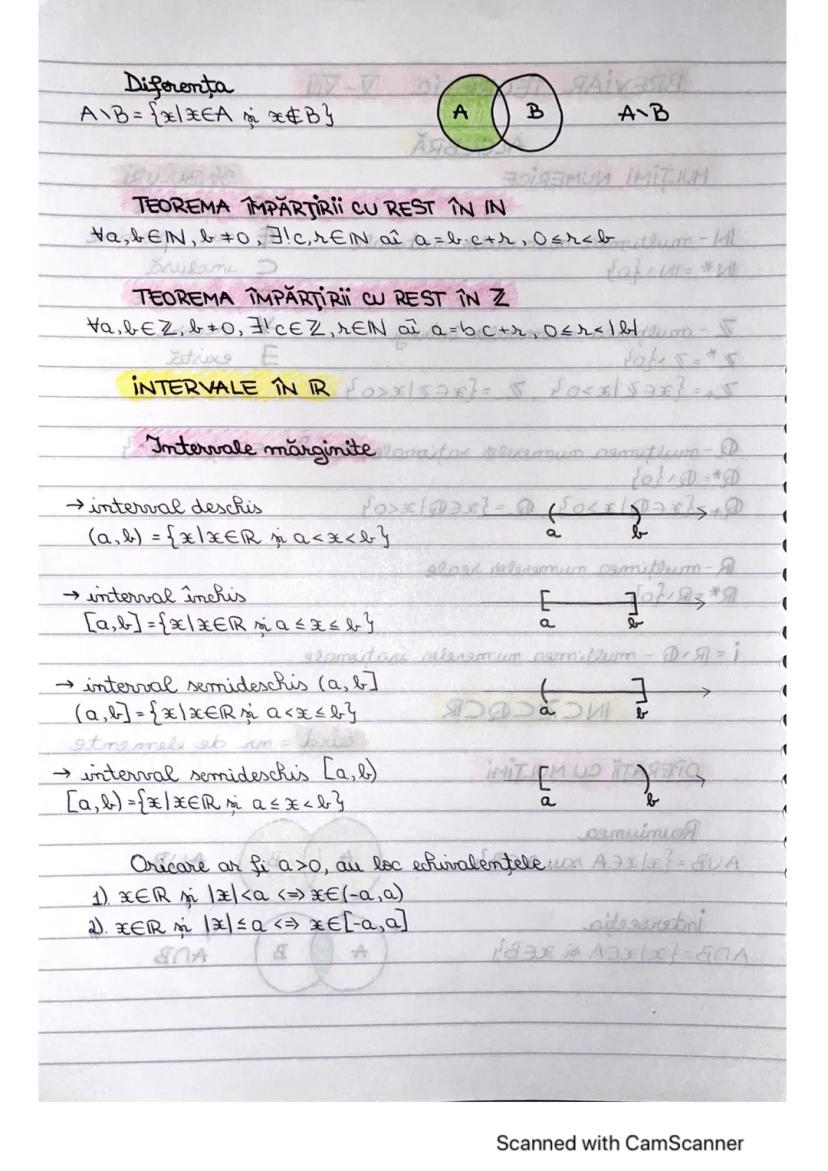 Diferența
A∖B = {x|x∈A și x∉B}
A B A∖B
TEOREMA ÎMPĂRȚIRII CU REST ÎN ℕ
∀a,b∈ℕ, b≠0, ∃!c,r∈ℕ aî a=b·c+r, 0≤r<b
TEOREMA ÎMPĂRȚIRII CU REST ÎN ℤ
∀a,b∈ℤ, b≠0, ∃!c∈ℤ, r∈ℕ aî a=b·c+r, 0≤r<|b|
INTERVALE ÎN ℝ
Intervale mărginite
→ interval deschis
(a,b) = {x|x∈ℝ și a<x<b}
a b
→ interval închis
[a,b] = {x|x∈ℝ și a≤x≤b}
a b
→ interval semideschis (a,b]
(a,b] = {x|x∈ℝ și a<x≤b}
a b
→ interval semideschis [a,b)
[a,b) = {x|x∈ℝ și a≤x<b}
a b
Oricare ar fi a>0, au loc echivalențele
1). x∈ℝ și |x|<a <=> x∈(-a,a)
2). x∈ℝ și |x|≤a <=> x∈[-a,a]
Scanned with CamScanner